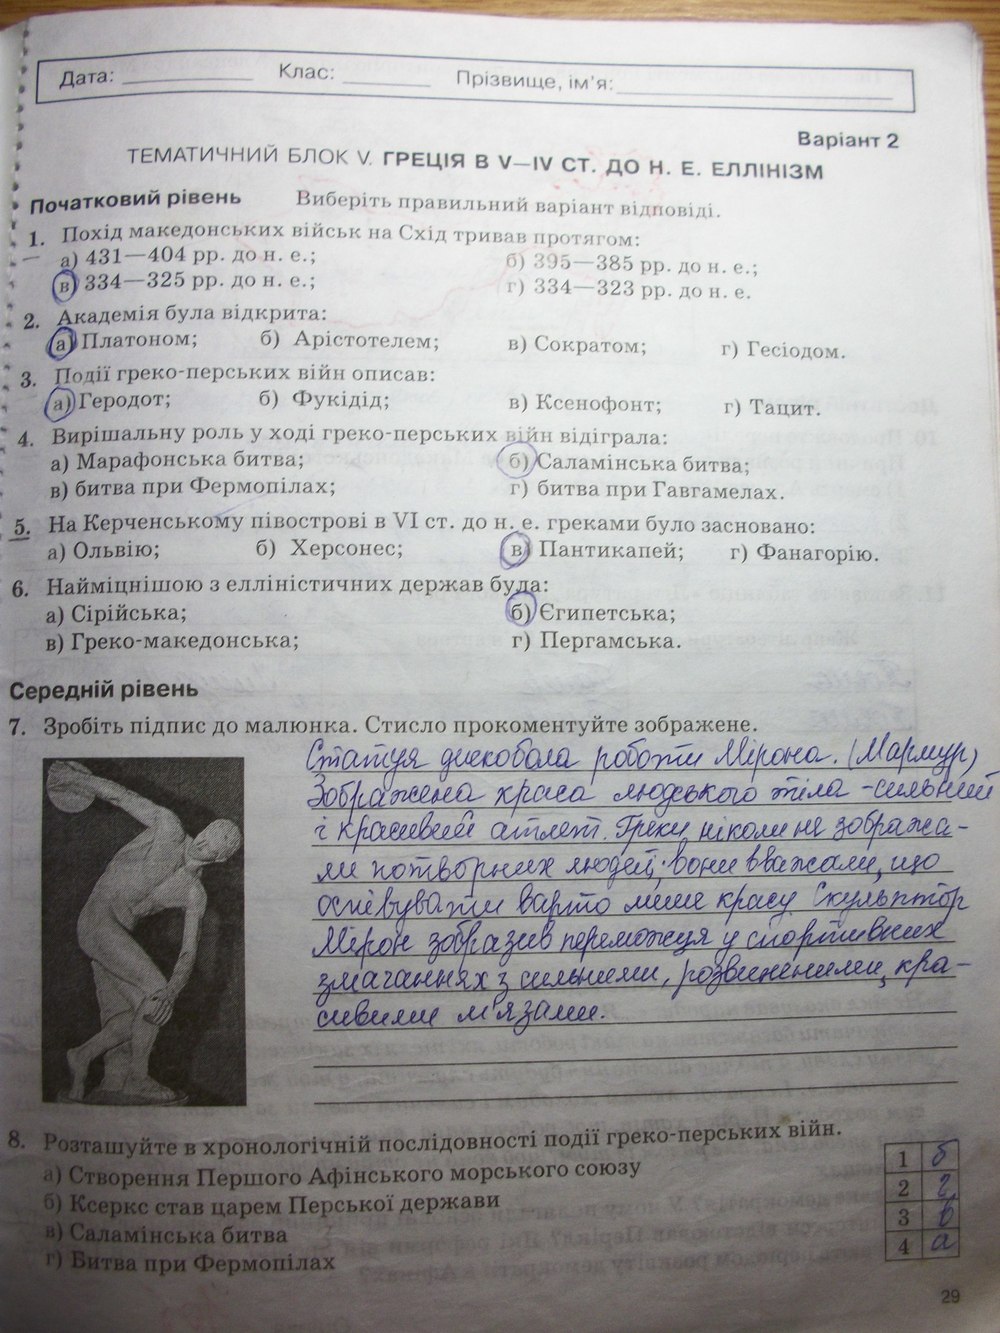 Дата: Клас: Прізвище, ім'я:
Варіант 2
ТЕМАТИЧНИЙ БЛОК V. ГРЕЦІЯ В V—IV СТ. ДО Н. Е. ЕЛЛІНІЗМ
Початковий рівень Виберіть правильний варіант відповіді.
1. Похід македонських військ на Схід тривав протягом:
а) 431—404 рр. до н. е.; б) 395—385 рр. до н. е.;
в) 334—325 рр. до н. е.; г) 334—323 рр. до н. е.
2. Академія була відкрита:
а) Платоном; б) Арістотелем; в) Сократом; г) Гесіодом.
3. Події греко-перських війн описав:
а) Геродот; б) Фукідід; в) Ксенофонт; г) Тацит.
4. Вирішальну роль у ході греко-перських війн відіграла:
а) Марафонська битва; б) Саламінська битва;
в) битва при Фермопілах; г) битва при Гавгамелах.
5. На Керченському півострові в VI ст. до н. е. греками було засновано:
а) Ольвію; б) Херсонес; в) Пантикапей; г) Фанагорію.
6. Найміцнішою з елліністичних держав була:
а) Сірійська; б) Єгипетська;
в) Греко-македонська; г) Пергамська.
Середній рівень
7. Зробіть підпис до малюнка. Стисло прокоментуйте зображене.
Статуя дискобола роботи Мірона. (Мармур)
Зображена краса людського тіла - сильний
і красивий атлет. Греки ніколи не зобража-
ли потворних людей; вони вважали, що
оспівувати варто лише красу Скульптор
Мірон зобразив переможця у спортивних
змаганнях з сильними, розвиненими, кра-
сивими м'язами.
8. Розташуйте в хронологічній послідовності події греко-перських війн.
а) Створення Першого Афінського морського союзу
б) Ксеркс став царем Перської держави
в) Саламінська битва
г) Битва при Фермопілах
1 б
2 г
3 в
4 а
29